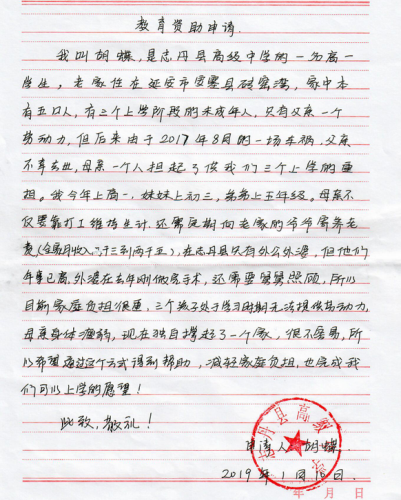 教育资助申请
我叫胡蝶,是志丹县高级中学的一名高一
学生,老家住在延安市安塞县砖窑湾,家中本
有五口人,有三个上学阶段的未成年人,只有父亲一个
劳动力,但后来由于2017年8月的一场车祸,父亲
不幸去世,母亲一个人担起了供我们三个上学的重
担。我今年上高一,妹妹上初三,弟弟上五年级。母亲不
仅要靠打工维持生计.还需定期向老家的爷爷寄养老
费(全家月收入 两千五),在志丹县只有外公外婆,但他们
年事已高,外婆在去年刚做完手术,还需要舅舅照顾,所以
目前家庭负担很重,三个孩子处于学习时期无法提供劳动力,
母亲身体瘦弱,现在独自撑起了一个家,很不容易,所
以希望通过这个方式得到帮助,减轻家庭负担,也完成我
们可以上学的愿望!
此致,敬礼!
申请人:胡蝶.
2019年1月 日.
年 月 日
志丹县高级